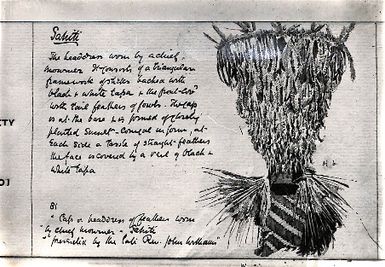 Tahiti
The headdress worn by a chief
mourner. It consists of a triangular
framework of sticks backed with
black & white tapa & the front
with tail feathers of fowls. The cap
is at the base & is formed of closely
plaited Sinnet - Conical in form, at
Each side a tassle of straight feathers
the face is covered by a veil of black &
white tapa
ETY
81
"Cap or headdress of feathers worn
by chief mourner - Tahiti
"presented by the late Rev. John Williams"